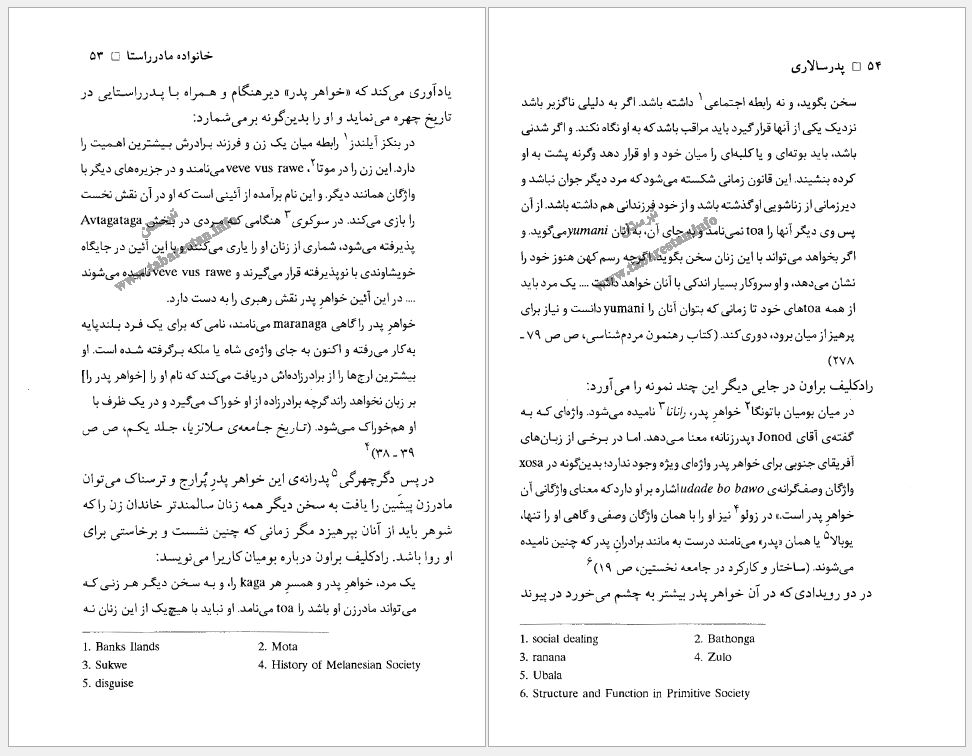 خانواده مادرراستا □ ۵۳
یادآوری می‌کند که «خواهر پدر» دیرهنگام و همراه با پدرراستایی در
تاریخ چهره می‌نماید و او را بدین‌گونه برمی‌شمارد:
در بنکز آیلندز۱ رابطه میان یک زن و فرزند برادرش بیشترین اهمیت را
دارد. این زن را در موتا۲، veve vus rawe می‌نامند و در جزیره‌های دیگر با
واژگان همانند دیگر. و این نام برآمده از آئینی است که او در آن نقش نخست
را بازی می‌کند. در سوکوی۳ هنگامی که مردی در بخش Avtagataga
پذیرفته می‌شود، شماری از زنان او را یاری می‌کنند و با این آئین در جایگاه
خویشاوندی با نوپذیرفته قرار می‌گیرند و veve vus rawe نامیده می‌شوند
.... در این آئین خواهرِ پدر نقش رهبری را به دست دارد.
خواهرِ پدر را گاهی maranaga می‌نامند، نامی که برای یک فرد بلندپایه
به‌کار می‌رفته و اکنون به جای واژه‌ی شاه یا ملکه برگرفته شده است. او
بیشترین ارج‌ها را از برادرزاده‌اش دریافت می‌کند که نام او را [خواهر پدر را]
بر زبان نخواهد راند گرچه برادرزاده از او خوراک می‌گیرد و در یک ظرف با
او هم‌خوراک می‌شود. (تاریخ جامعه‌ی ملانزیا، جلد یکم، ص ص
۳۹ ـ ۳۸)۴
در پس دگرچهرگی۵ پدرانه‌ی این خواهر پدرِ پُرارج و ترسناک می‌توان
مادرزن پیشین را یافت به سخن دیگر همه زنان سالمندتر خاندان زن را که
شوهر باید از آنان بپرهیزد مگر زمانی که چنین نشست و برخاستی برای
او روا باشد. رادکلیف براون درباره بومیان کاریرا می‌نویسد:
یک مرد، خواهرِ پدر و همسرِ هر kaga را، و به سخن دیگر هر زنی که
می‌تواند مادرزن او باشد را toa می‌نامد. او نباید با هیچ‌یک از این زنان نه
1. Banks Ilands 2. Mota
3. Sukwe 4. History of Melanesian Society
5. disguise
۵۴ □ پدرسالاری
سخن بگوید، و نه رابطه اجتماعی۱ داشته باشد. اگر به دلیلی ناگزیر باشد
نزدیک یکی از آنها قرار گیرد باید مراقب باشد که به او نگاه نکند. و اگر شدنی
باشد، باید بوته‌ای و یا کلبه‌ای را میان خود و او قرار دهد وگرنه پشت به او
کرده بنشیند. این قانون زمانی شکسته می‌شود که مرد دیگر جوان نباشد و
دیرزمانی از زناشویی او گذشته باشد و از خود فرزندانی هم داشته باشد. از آن
پس وی دیگر آنها را toa نمی‌نامد و به جای آن، به آنان yumani می‌گوید. و
اگر بخواهد می‌تواند با این زنان سخن بگوید. اگرچه رسم کهن هنوز خود را
نشان می‌دهد، و او سروکار بسیار اندکی با آنان خواهد داشت .... یک مرد باید
از همه toaهای خود تا زمانی که بتوان آنان را yumani دانست و نیاز برای
پرهیز از میان برود، دوری کند. (کتاب رهنمون مردم‌شناسی، ص ص ۷۹ ـ
۲۷۸)
رادکلیف براون در جایی دیگر این چند نمونه را می‌آورد:
در میان بومیان باتونگا۲ خواهرِ پدر، رانانا۳ نامیده می‌شود. واژه‌ای که به
گفته‌ی آقای Jonod «پدرزنانه» معنا می‌دهد. اما در برخی از زبان‌های
آفریقای جنوبی برای خواهر پدر واژه‌ای ویژه وجود ندارد؛ بدین‌گونه در xosa
واژگان وصف‌گرانه‌ی udade bo bawo اشاره بر او دارد که معنای واژگانی آن
خواهرِ پدر است.» در زولو۴ نیز او را با همان واژگان وصفی و گاهی او را تنها،
یوبالا۵ یا همان «پدر» می‌نامند درست به مانند برادرانِ پدر که چنین نامیده
می‌شوند. (ساختار و کارکرد در جامعه نخستین، ص ۱۹)۶
در دو رویدادی که در آن خواهر پدر بیشتر به چشم می‌خورد در پیوند
1. social dealing 2. Bathonga
3. ranana 4. Zulo
5. Ubala
6. Structure and Function in Primitive Society
تبرستان
www.tabarestan.info
تبرستان
www.tabarestan.info